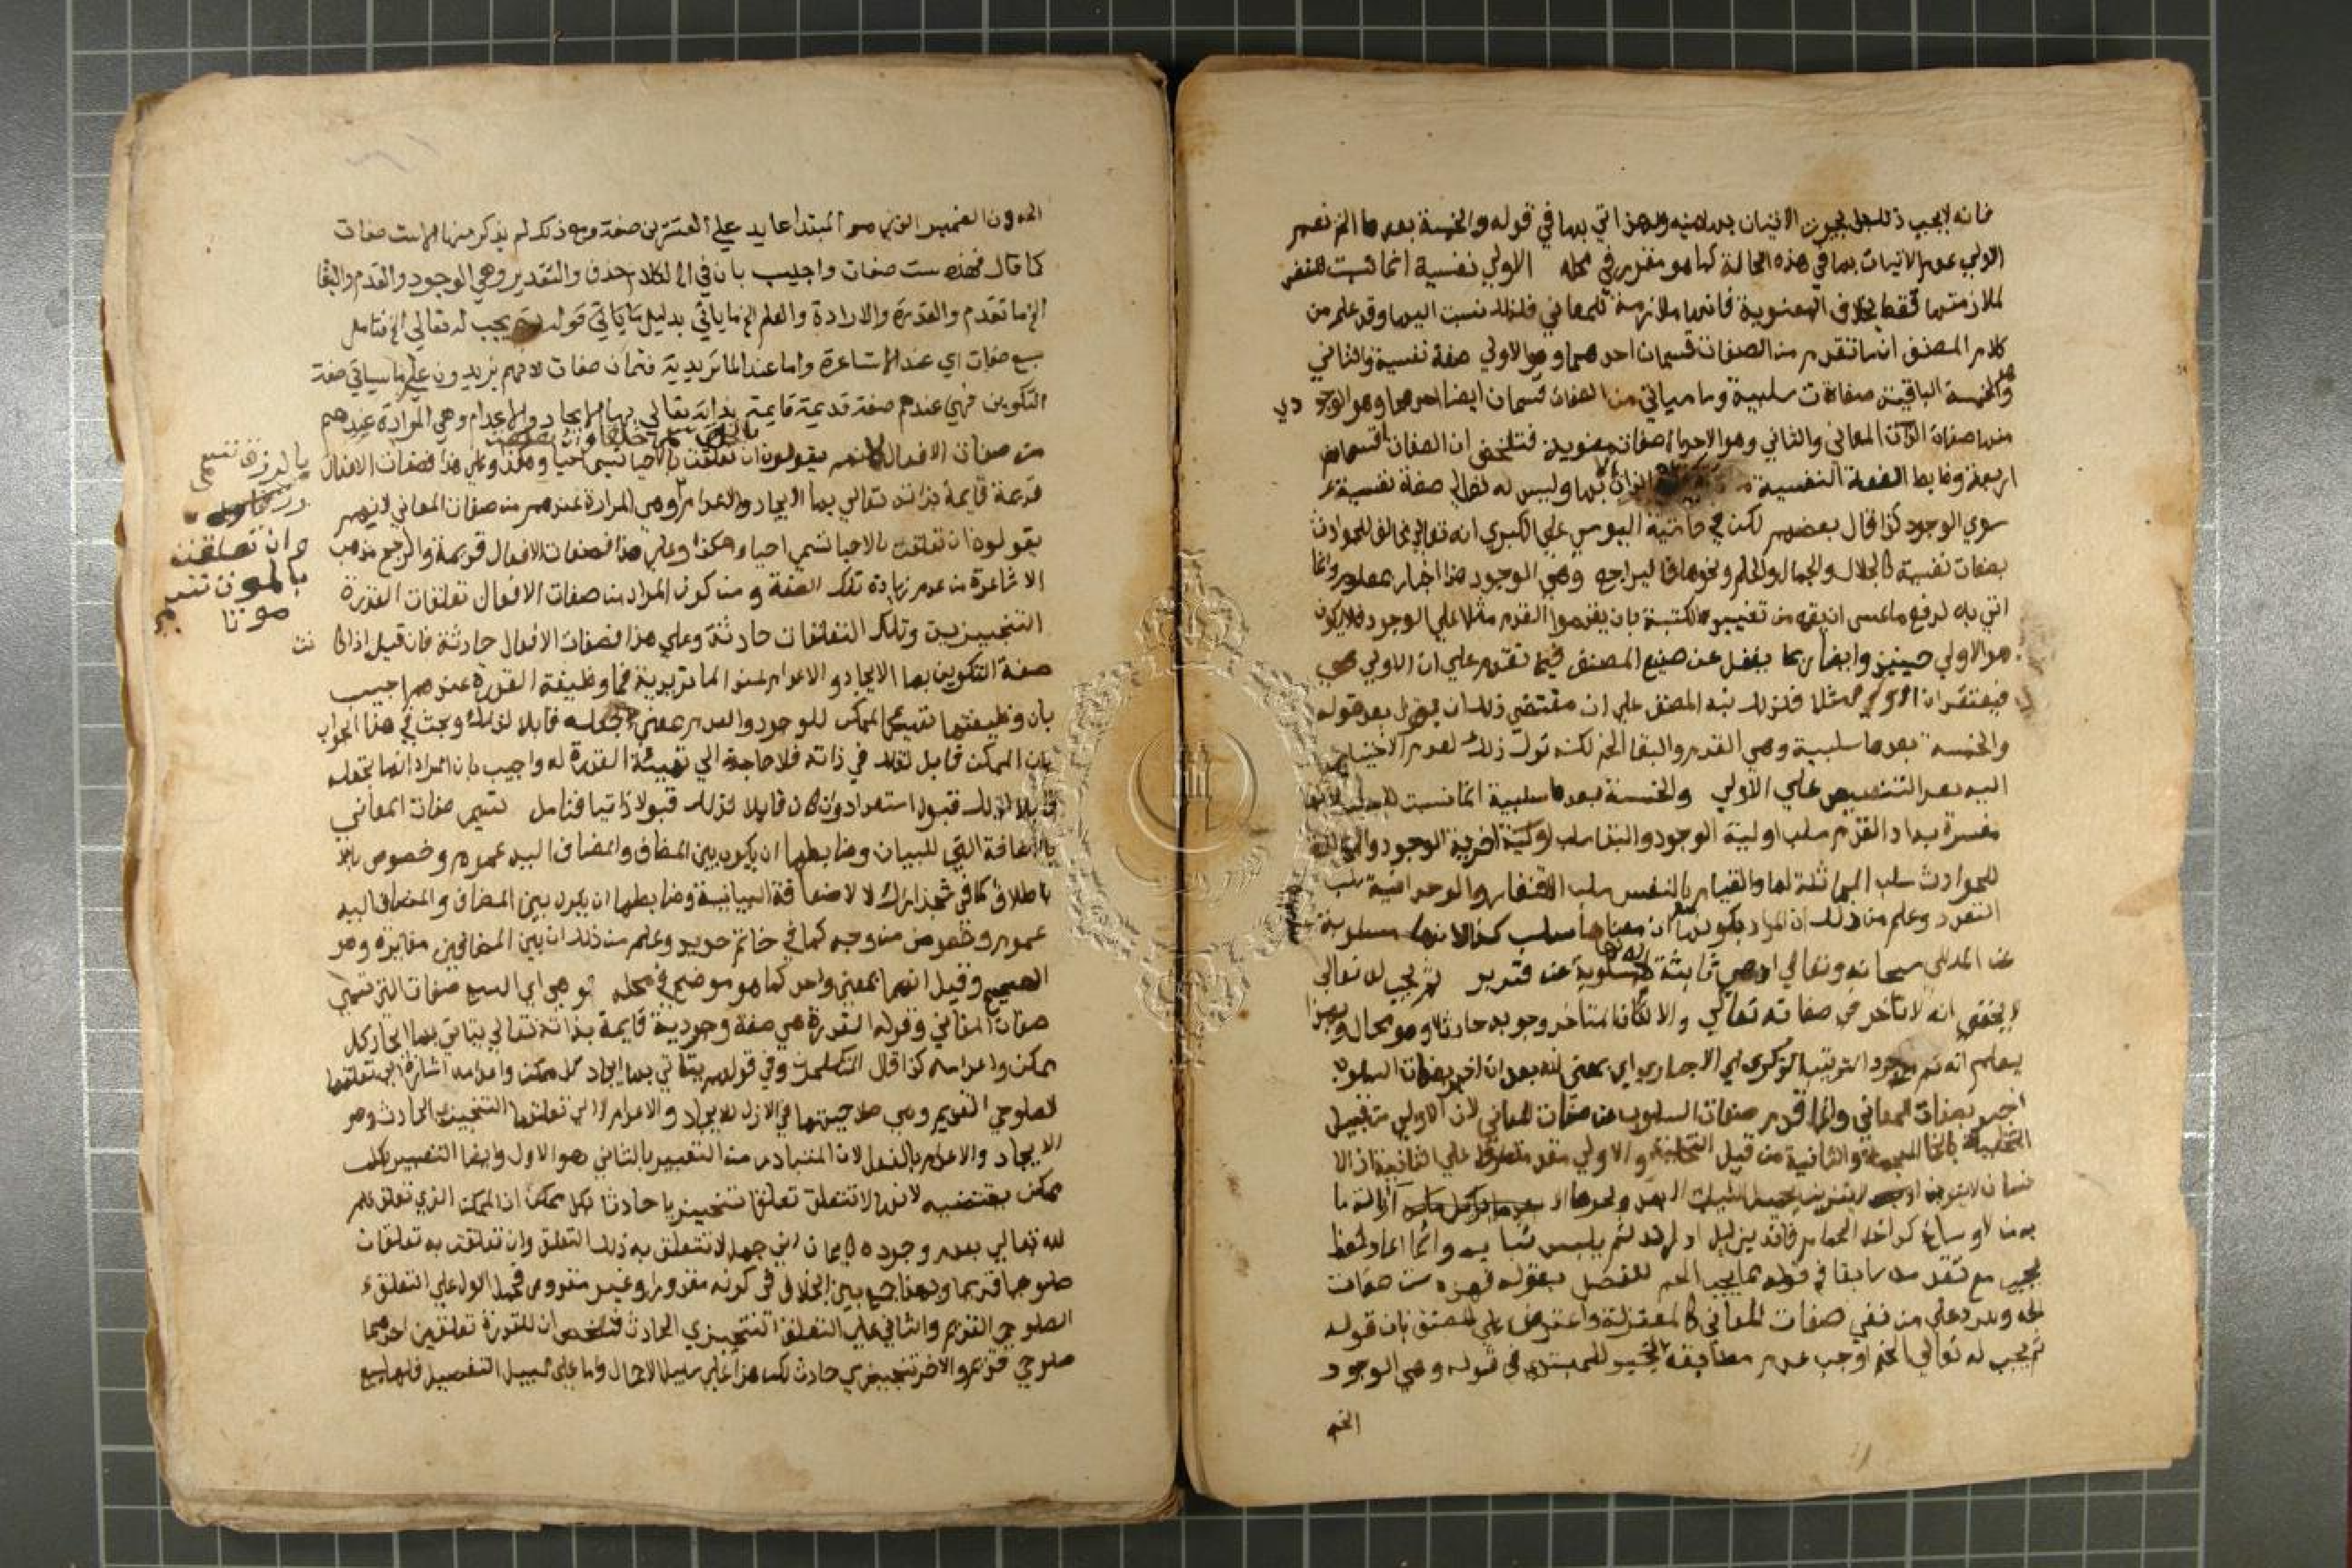 فانه لا يجب ذلك بل يجوز الاتيان بها منه ولهذا اتي بها في قوله والخمسة بعدها الخ نعم
الاولي عدم الاتيان بها في هذه الحالة كما هو مقرر في محله الاولي نفسية انما نسبت للنفس
لملازمتها فقط بخلاف المعنوية فانها ملازمة للمعاني فلذلك نسبت اليها وقد علم من
كلام المصنف ان ما تقدم من الصفات قسمان احدهما وهو الاولي صفة نفسية والثاني
وهو الخمسة الباقية صفات سلبية وما سياتي من الصفات قسمان ايضا احدهما وهو الوجودي
منها صفات المعاني والثاني وهو الاحوال صفات معنوية فتلخص ان الصفات اقسام
اربعة وضابط الصفة النفسية الذات بدونها وليس له تعالي صفة نفسية
سوي الوجود كذا قال بعضهم لكن في حاشية اليوسي علي الكبري انه تعالي مخالف للحوادث
بصفات نفسية كالجلال والجمال والحلم ونحوها فاليراجع وهي الوجود هذا اخبار بمعلوم وانما
اتي به لدفع ما عسي ان يقع من تغيير الكتبة بان يقدموا القدم مثلا علي الوجود فلا يكون
هو الاولي حينئذ وايضا ربما يغفل عن صنيع المصنف فيما تقدم علي ان الاولي هي
فيعتقد ان الاولي مثلا فلذلك نبه المصنف علي ان مقتضي ذلك ان يقول بعد قوله
والخمسة بعدها سلبية وهي القدم والبقا الخ لكنه ترك ذلك لعدم الاحتياج
اليه بعد التنصيص علي الاولي والخمسة بعدها سلبية انما نسبت للسلب لانها
مفسرة به اذ القدم سلب اولية الوجود والبقا سلب اخرية الوجود والمخالفة
للحوادث سلب المماثلة لها والقيام بالنفس سلب الافتقار والوحدانية سلب
التعدد وعلم من ذلك ان المراد بكونها ان معناها سلب كذا لا انها مسلوبة
عن المولي سبحانه وتعالي اذ هي ثابتة له لا مسلوبة عنه فتدبر ثم يجب له تعالي
لا يخفي انه لا تأخر في صفاته تعالي والا لكان المتاخر وجوبه حادثا وهو محال وبهذا
يعلم ان ثم لمجرد الترتيب الذكري اي الاخباري اي بمعني انه بعد ان اخبر بصفات السلوب
اخبر بصفات المعاني وانما قدم صفات السلوب عن صفات المعاني لان الاولي من قبيل
التخلية بالخا المعجمة والثانية من قبيل التحلية والاولي مقدمة علي الثانية اذ الا
نسان لا يتزين بلبس الثياب ونحوها الا بعد ازالة ما
به من الاوساخ كداخل الحمام فانه يزيل ادرانه ثم يلبس ثيابه وانما اعاد لفظ
يجب مع تقدمه سابقا في قوله مما يجب الخ للفصل بقوله فهذه ست صفات
الخ وللرد علي من نفي صفات المعاني كالمعتزلة واعترض علي المصنف بان قوله
ثم يجب له تعالي الخ اوجب عدم مطابقة الخبر للمبتدا في قوله وهي الوجود
الخ
الخ دون الضمير الذي هو المبتدا عايد علي العشرين صفة ومع ذلك لم يذكر منها الا ست صفات
كما قال فهذه ست صفات واجيب بان في الكلام حذف والتقدير وهي الوجود والقدم والبقا
الخ ما تقدم والقدرة والارادة والعلم الخ ما ياتي بدليل ما ياتي قوله ثم يجب له تعالي الخ فتامل
سبع صفات اي عند الاشاعرة واما عند الماتريدية فثمان صفات لانهم يزيدون علي ما سياتي صفة
التكوين فهي عندهم صفة قديمة قايمة بذاته تعالي بها الايجاد والاعدام وهي المرادة عندهم
من صفات الافعال لانهم يقولون ان تعلقت بالاحيا تسمي احيا وهكذا وعلي هذا فصفات الافعال
قديمة قايمة بذاته تعالي بها الايجاد والاعدام وهي المرادة عندهم من صفات المعاني لانهم
يقولون ان تعلقت بالاحيا تسمي احياء وهكذا وعلي هذا فصفات الافعال قديمة والراجح مذهب
الاشاعرة من عدم زيادة تلك الصفة ومن كون المراد من صفات الافعال تعلقات القدرة
التنجيزية وتلك التعلقات حادثة وعلي هذا فصفات الافعال حادثة فان قيل اذا كانت
صفة التكوين بها الايجاد والاعدام عند الماتريدية فما وظيفة القدرة عندهم اجيب
بان وظيفتها تهيئ الممكن للوجود والعدم بمعني تجعله قابلا لذلك وبحث في هذا الجواب
بان الممكن قابل لذلك في ذاته فلا حاجة الي تهيئة القدرة له واجيب بان المراد انها تجعله
قابلا لذلك قبول استعداد وان كان قابلا لذلك قبولا ذاتيا فتامل تسمي صفات المعاني
بالاضافة التي للبيان وضابطها ان يكون بين المضاف والمضاف اليه عموم وخصوص
باطلاق كما في شجر اراك لا الاضافة البيانية وضابطها ان يكون بين المضاف والمضاف اليه
عموم وخصوص من وجه كما في خاتم حديد وعلم من ذلك ان بين المضافين مغايرة وهو
الصحيح وقيل انهما بمعني واحد كما هو موضح في محله وهي اي السبع صفات التي تسمي
صفات المعاني وقوله القدرة هي صفة وجودية قايمة بذاته تعالي يتاتي بها ايجاد كل
ممكن واعدامه كذا قال المتكلمون وفي قولهم يتاتي بها ايجاد كل ممكن واعدامه اشارة الي تعلقها
الصلوحي القديم وهي صلاحيتها في الازل للايجاد والاعدام لا الي تعلقها التنجيزي الحادث وهو
الايجاد والاعدام بالفعل لان المتبادر من التعبير بالتاتي هو الاول وايضا التعبير بكل
ممكن يقتضيه لانها لا تتعلق تعلقا تنجيزيا حادثا بكل ممكن اذ الممكن الذي تعلق علم
الله تعالي بعدم وجوده كايمان ابي جهل لا تتعلق به ذلك التعلق وان تعلقت به تعلقات
صلوحيا قديما وبهذا جمع بين الخلاف في كونه مقدورا وغير مقدور فحمل الاول علي التعلق
الصلوحي القديم والثاني علي التعلق التنجيزي الحادث فتلخص ان للقدرة تعلقين احدهما
صلوحي قديم والاخر تنجيزي حادث لكن هذا علي سبيل الاجمال واما علي سبيل التفصيل فلها سبع
بالرزق تسمي
وان تعلقت
بالموت تسمي
موتا